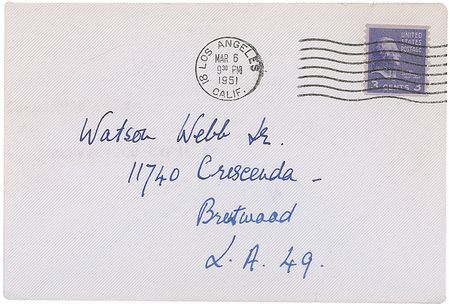 18 LOS ANGELES
MAR 6
9 30 PM
1951
CALIF.
UNITED STATES
POSTAGE
3 CENTS 3
Watson Webb Jr.
11740 Crescenda -
Brentwood
L.A. 49.